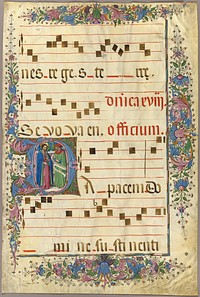 nes re ge s te rre.
dn̄ica xviij.
Se vo va en. officium.
Da pacem do
mi ne su sti nenti